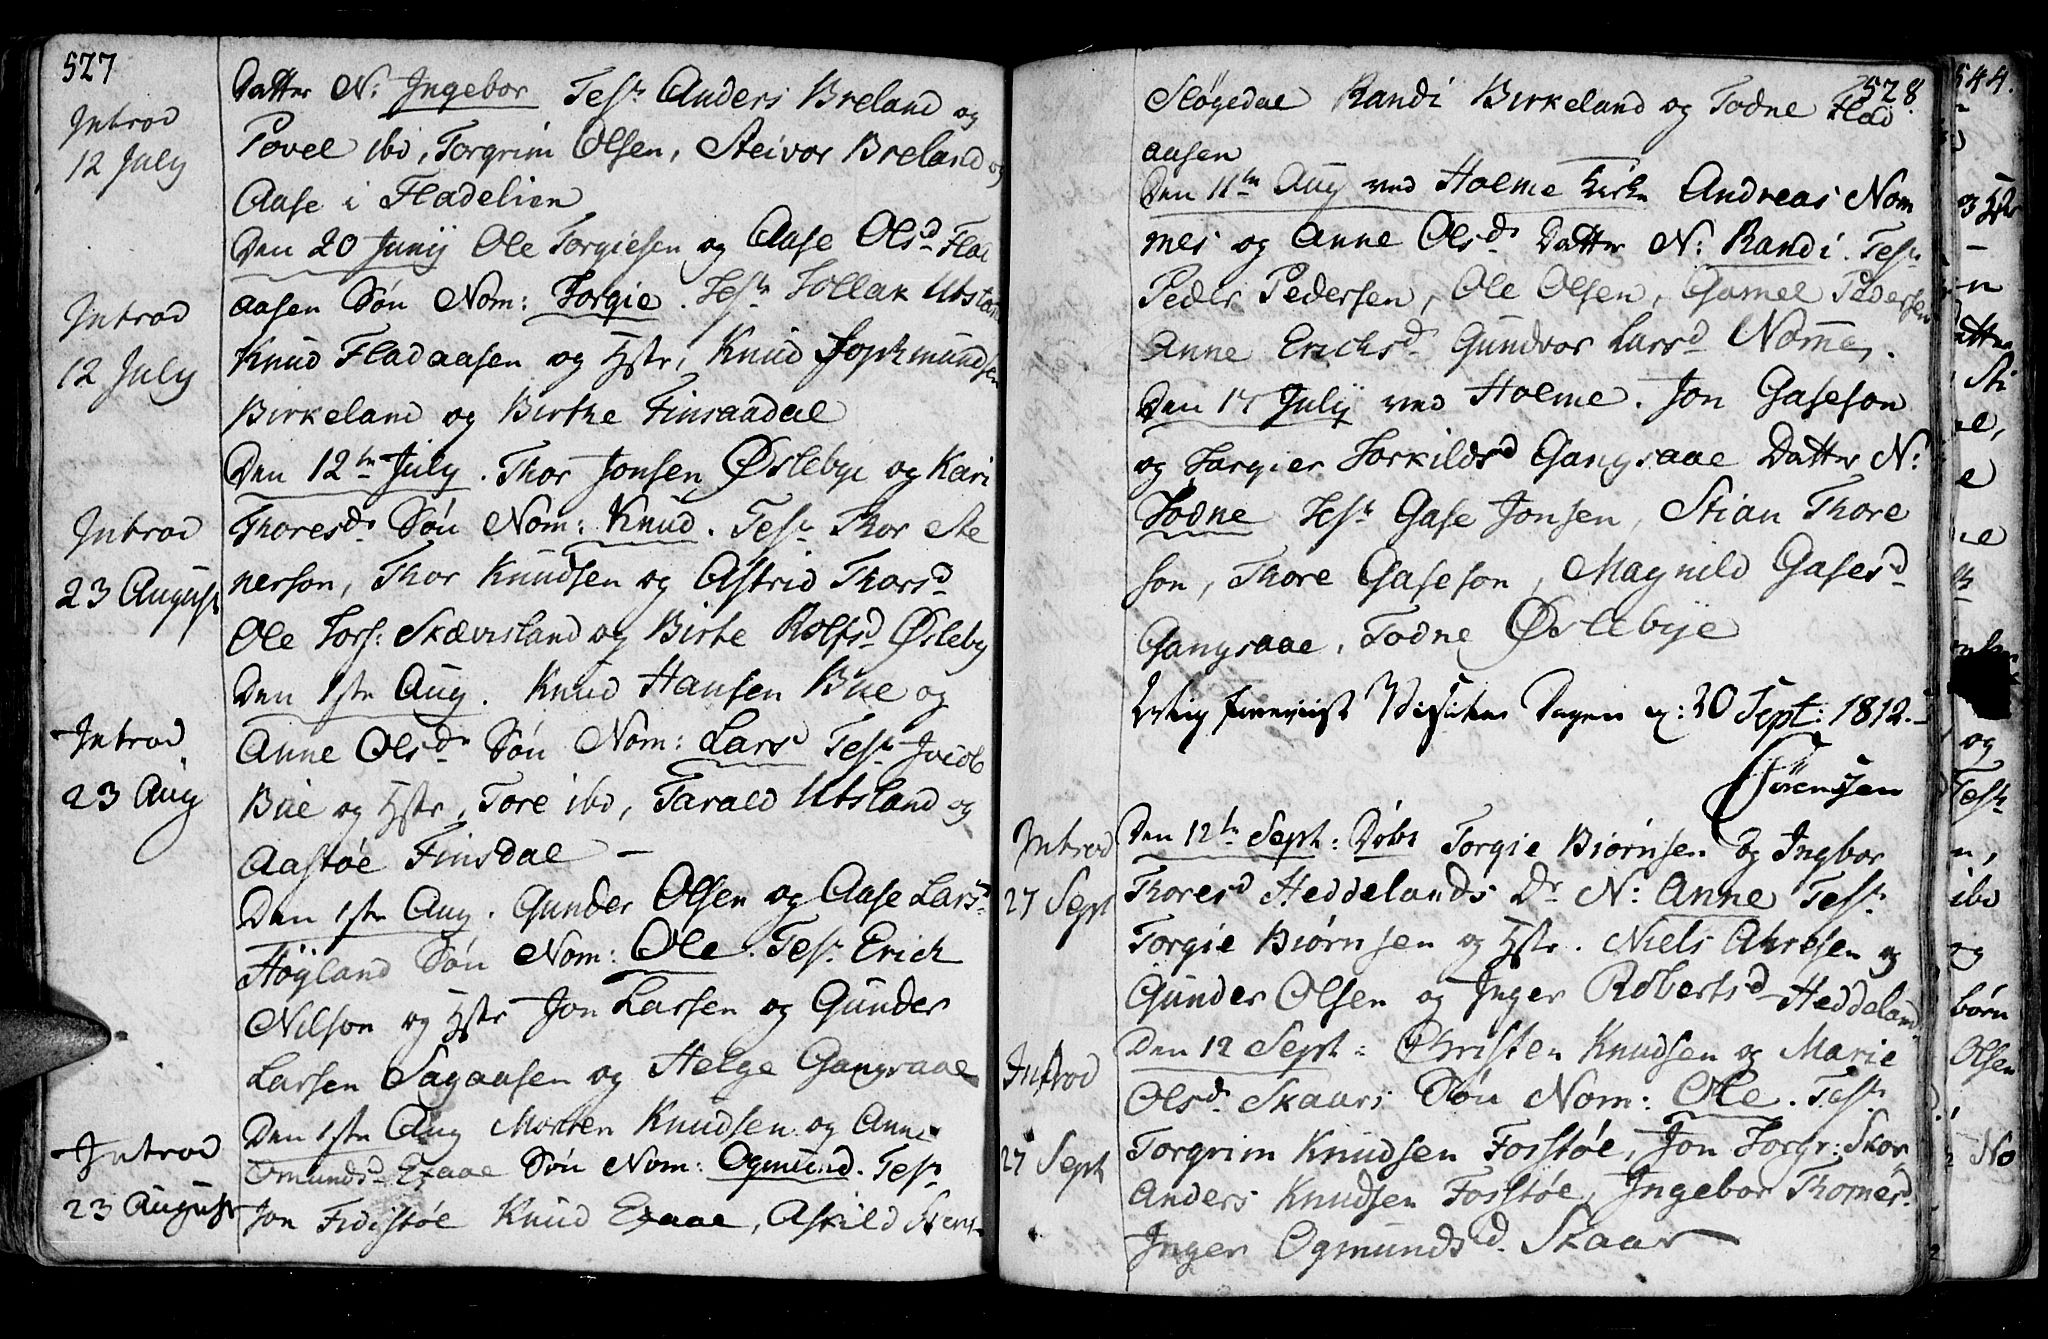 527
Introd
12 July
Datter N: Ingebor Test. Anders Breland og
Povel ibd, Torgrim Olsen, Steivor Breland og
Aase i Fladelien
Den 20 Junij Ole Torgiesen og Aase Olsd. Flad
Introd
12 July
aasen Søn Nom: Torgie. Test. Tollak Utsland
Knud Fladaasen og Hstr, Knud
Birkeland og Birthe Finsaadal
Den 12te July. Thor Jonsen Øslebye og Kari
Introd
23 August
Thoresd. Søn Nom: Knud. Test. Thor Ste
nerson, Thor Knudsen og Astrid Thorsd.
Ole Tors: Skævisland og Birte Rolfsd Øsleby
Den 1ste Aug. Knud Hansen Bue og
Introd
23 Aug
Anne Olsd. Søn Nom: Lars Test.
Bue og Hstr, Tore ibd, Tarald Utsland og
Aastøe Finsdal –
Den 1ste Aug. Gunder Olsen og Aase Larsd.
Høyland Søn Nom: Ole. Test. Erich
Nilson og Hstr Jon Larsen og Gunder
Larsen Sagaasen og Helge Gangsaae
Introd
23 August
Den 1ste Aug Morten Knudsen og Anne
Omundsd. Søn Nom: Ogmund. Test.
Jon Fidjstøe Knud Askild
528
Støgedal Randi Birkeland og Todne Flad
aasen
Den 11te Aug ved Holme Kirke Andreas Nom
mei og Anne Olsd. Datter N: Randi. Test.
Peder Pedersen, Ole Olsen, Gamel Pedersen
Anne Erichsd. Gundvor Larsd Nomme.
Den 17 Julij ved Holme. Jon Gaseson
og Torgier Torkildsd Gangsaae Datter N:
Todne Test. Gase Jonsen, Stian Thore
son, Thore Gaseson, Magnild Gasesd.
Gangsaae, Todne Øslebye
Visitas Dagen d: 20 Sept: 1812.
Sørenssen
Introd
27 Sept
Den 12te Sept: Døbt Torgie Biørnsen og Ingbor
Thoresd Heddelands Dr N: Anne Test.
Torgie Biørnsen og Hstr. Niels og
Gunder Olsen og Inger Robertsd Heddeland
Introd
27 Sept
Den 12 Sept: Christen Knudsen og Marie
Olsd. Skaars Søn Nom: Ole. Test.
Torgrim Knudsen Fosstøe, Jon Torgr: Skor
Anders Knudsen Fosstøe, Ingebor Thomesd.
Inger Ogmundsd. Skaar
544.
og
Test.
ibd
og
børn
Olsen
No